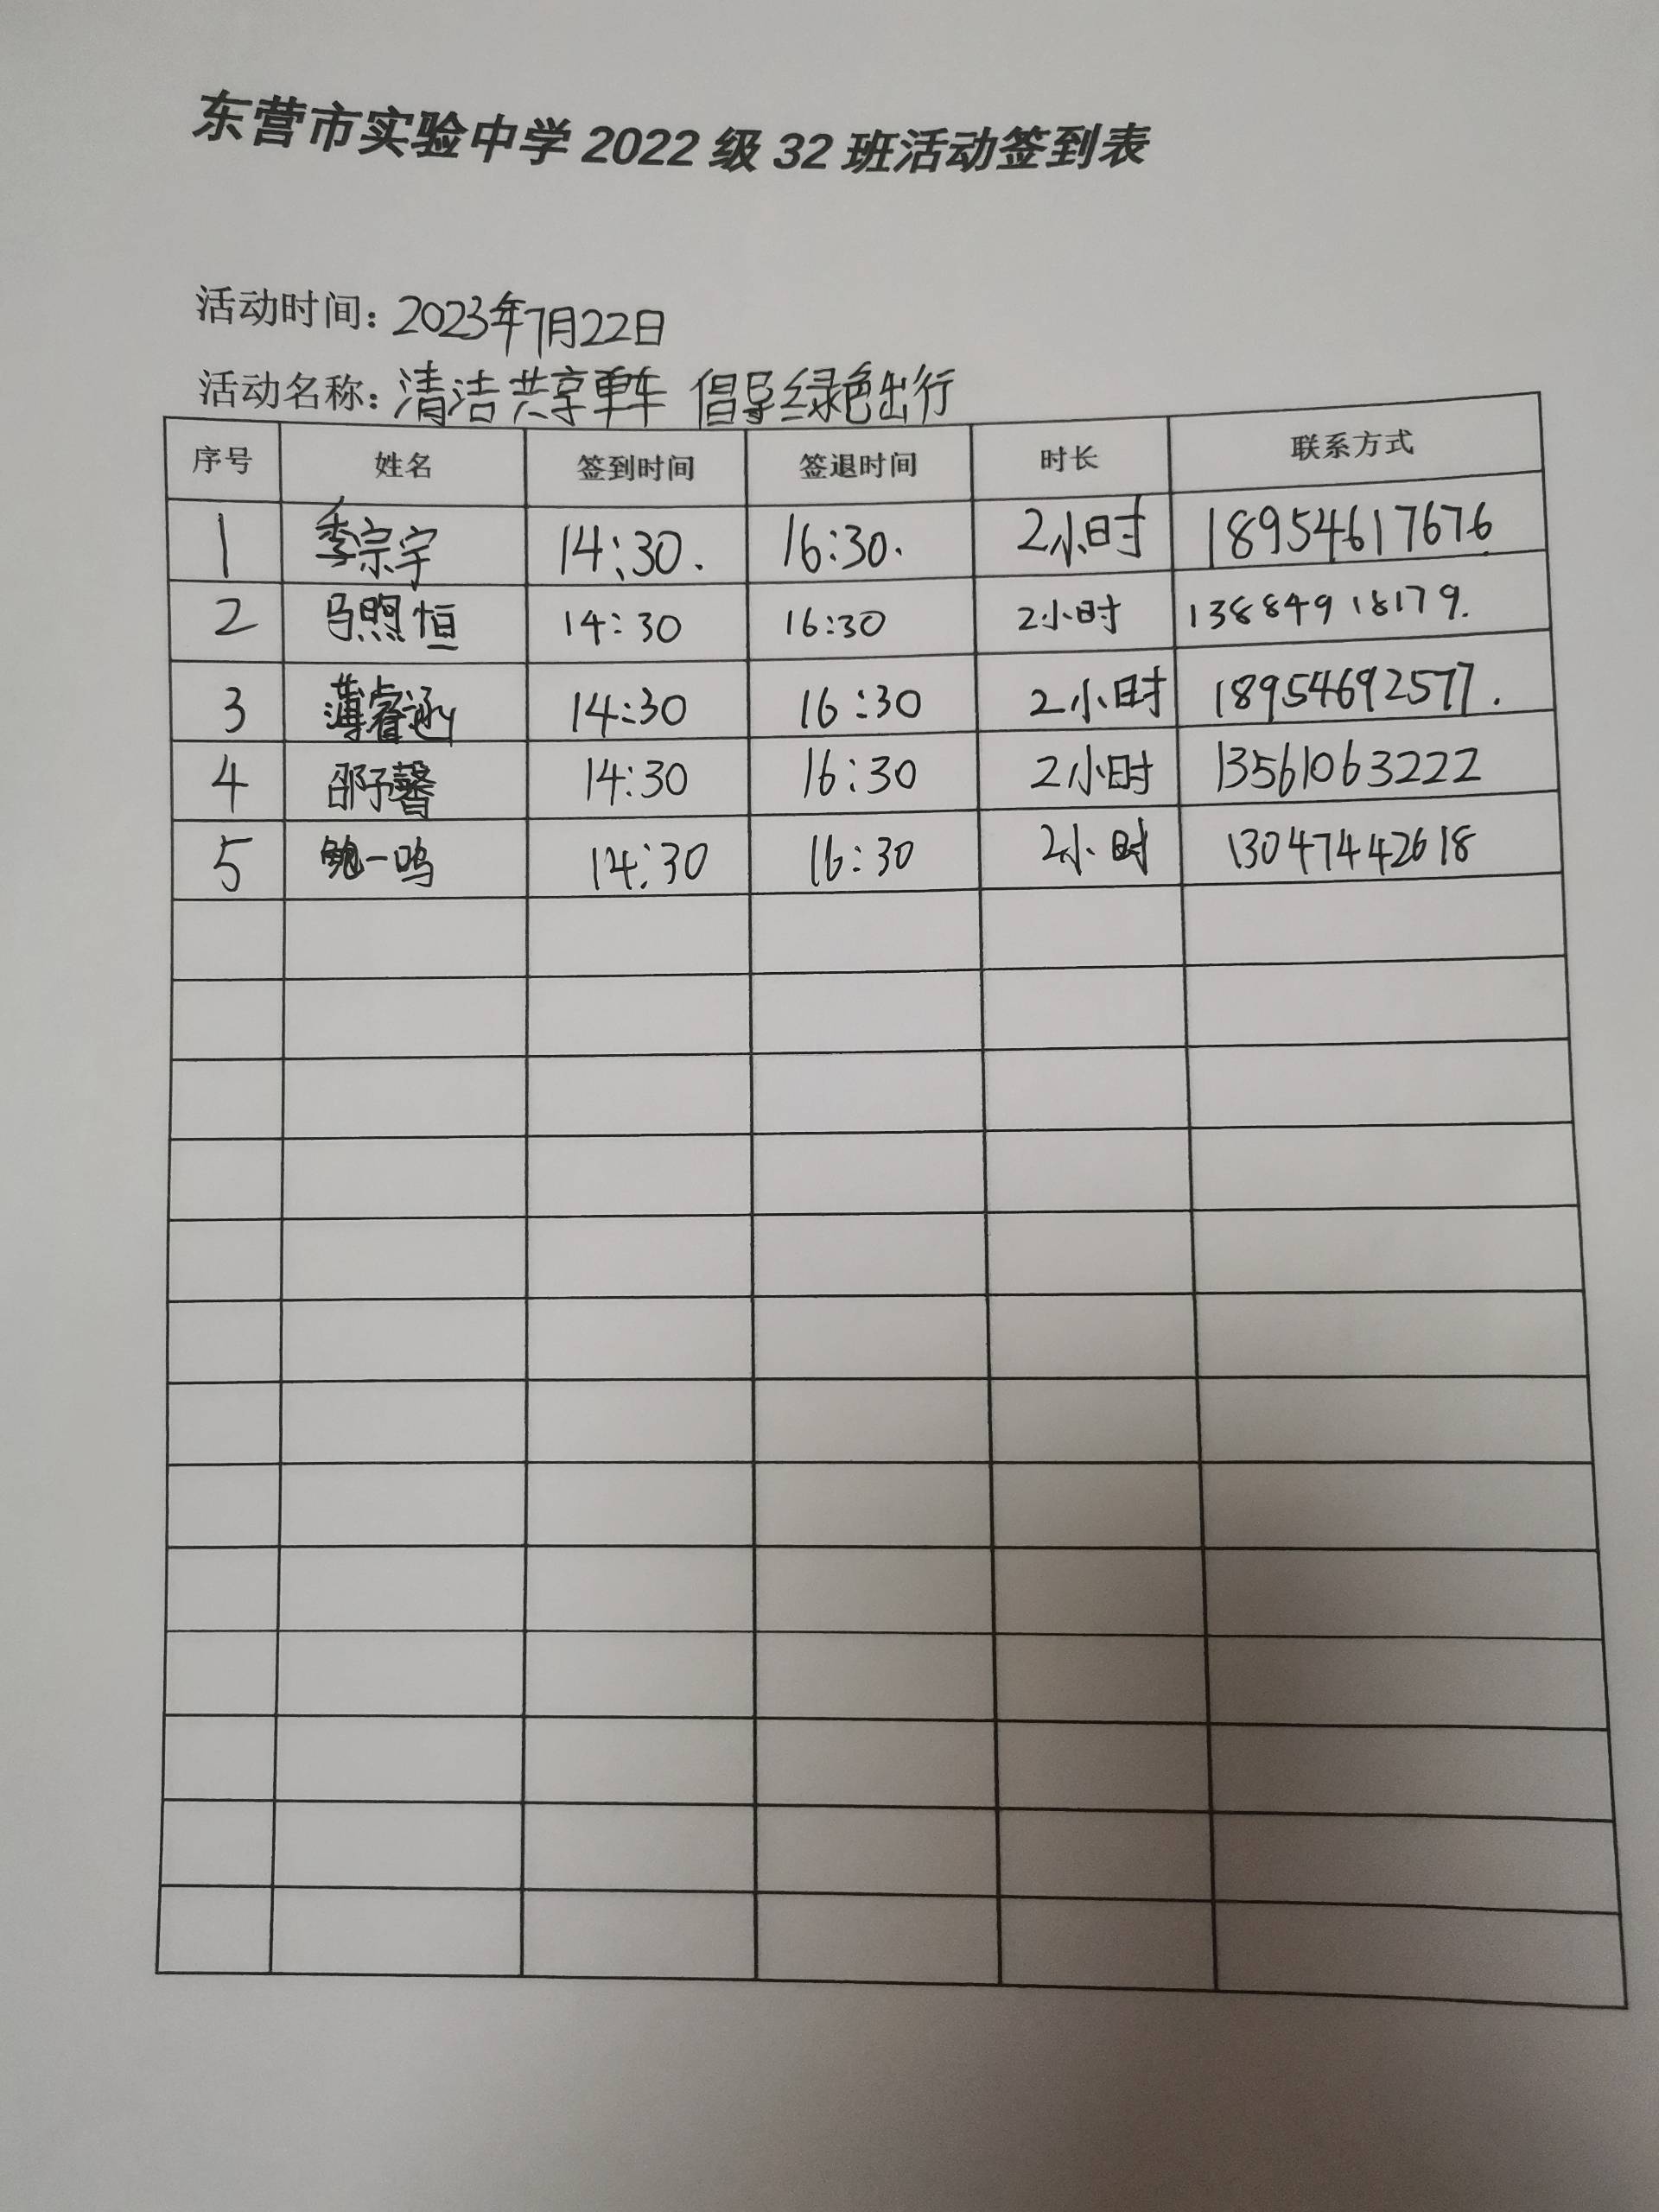 东营市实验中学2022级32班活动签到表
活动时间：2023年7月22日
活动名称：清洁共享单车 倡导绿色出行
序号 姓名 签到时间 签退时间 时长 联系方式
1 季宗宇 14:30. 16:30. 2小时 18954617676
2 马煦恒 14:30 16:30 2小时 13884918179.
3 薄睿涵 14:30 16:30 2小时 18954692577.
4 邵子馨 14:30 16:30 2小时 13561063222
5 鲍一鸣 14:30 16:30 2小时 13047442618